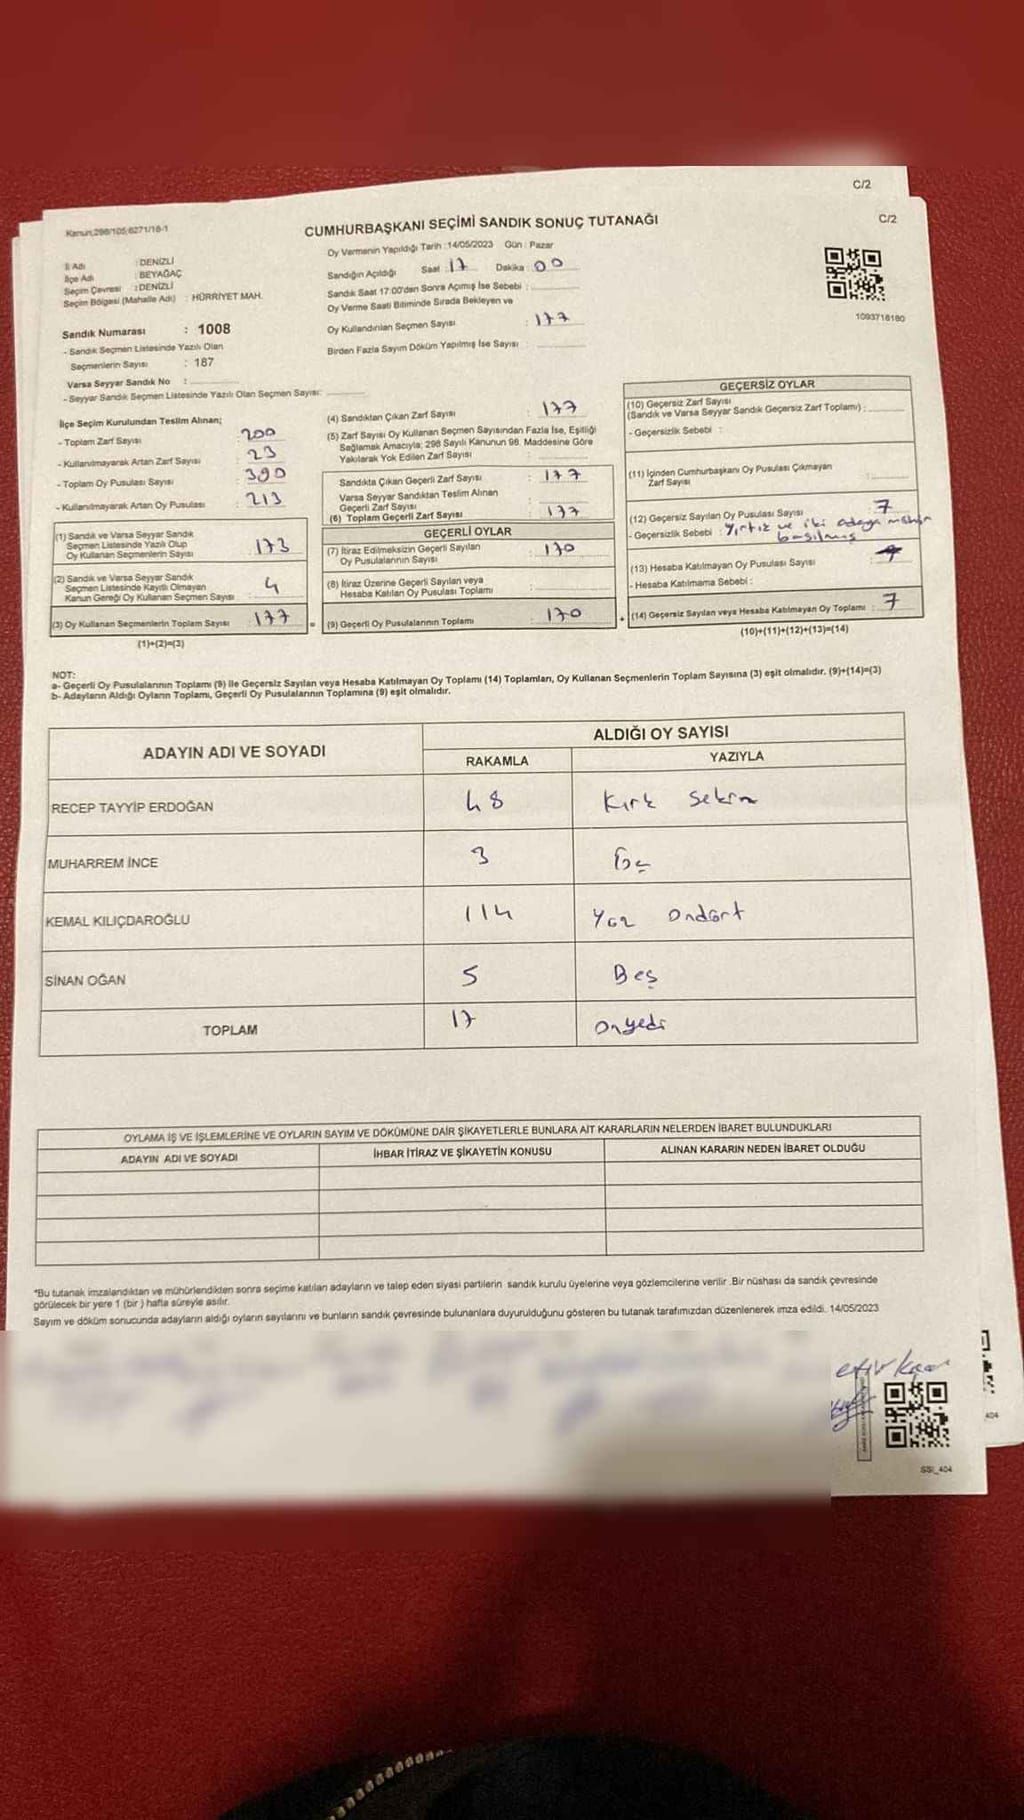 C/2
C/2
Kanun;298/105;6271/18-1
CUMHURBAŞKANI SEÇİMİ SANDIK SONUÇ TUTANAĞI
Oy Vermenin Yapıldığı Tarih :14/05/2023 Gün : Pazar
İl Adı : DENİZLİ
İlçe Adı : BEYAĞAÇ
Seçim Çevresi : DENİZLİ
Seçim Bölgesi (Mahalle Adı) : HÜRRİYET MAH.
Sandık Numarası : 1008
- Sandık Seçmen Listesinde Yazılı Olan
Seçmenlerin Sayısı : 187
Varsa Seyyar Sandık No :
- Seyyar Sandık Seçmen Listesinde Yazılı Olan Seçmen Sayısı:
Sandığın Açıldığı Saat : 17 Dakika : 00
Sandık Saat 17:00'den Sonra Açımış İse Sebebi :
Oy Verme Saati Bitiminde Sırada Bekleyen ve
Oy Kullandırılan Seçmen Sayısı : 177
Birden Fazla Sayım Döküm Yapılmış İse Sayısı :
1093718180
İlçe Seçim Kurulundan Teslim Alınan;
- Toplam Zarf Sayısı : 200
- Kullanılmayarak Artan Zarf Sayısı : 23
- Toplam Oy Pusulası Sayısı : 390
- Kullanılmayarak Artan Oy Pusulası : 213
(1) Sandık ve Varsa Seyyar Sandık
Seçmen Listesinde Yazılı Olup
Oy Kullanan Seçmenlerin Sayısı : 173
(2) Sandık ve Varsa Seyyar Sandık
Seçmen Listesinde Kayıtlı Olmayan
Kanun Gereği Oy Kullanan Seçmen Sayısı : 4
(3) Oy Kullanan Seçmenlerin Toplam Sayısı : 177
(1)+(2)=(3)
(4) Sandıktan Çıkan Zarf Sayısı : 177
(5) Zarf Sayısı Oy Kullanan Seçmen Sayısından Fazla İse, Eşitliği
Sağlamak Amacıyla; 298 Sayılı Kanunun 98. Maddesine Göre
Yakılarak Yok Edilen Zarf Sayısı :
Sandıkta Çıkan Geçerli Zarf Sayısı : 177
Varsa Seyyar Sandıktan Teslim Alınan
Geçerli Zarf Sayısı :
(6) Toplam Geçerli Zarf Sayısı : 177
GEÇERLİ OYLAR
(7) İtiraz Edilmeksizin Geçerli Sayılan
Oy Pusulalarının Sayısı : 170
(8) İtiraz Üzerine Geçerli Sayılan veya
Hesaba Katılan Oy Pusulası Toplamı :
= (9) Geçerli Oy Pusulalarının Toplamı : 170
GEÇERSİZ OYLAR
(10) Geçersiz Zarf Sayısı
(Sandık ve Varsa Seyyar Sandık Geçersiz Zarf Toplamı) :
- Geçersizlik Sebebi :
(11) İçinden Cumhurbaşkanı Oy Pusulası Çıkmayan
Zarf Sayısı :
(12) Geçersiz Sayılan Oy Pusulası Sayısı : 7
- Geçersizlik Sebebi : Yırtız ve iki adaya mühür
basılmış
(13) Hesaba Katılmayan Oy Pusulası Sayısı :
- Hesaba Katılmama Sebebi :
+ (14) Geçersiz Sayılan veya Hesaba Katılmayan Oy Toplamı : 7
(10)+(11)+(12)+(13)=(14)
NOT:
a- Geçerli Oy Pusulalarının Toplamı (9) ile Geçersiz Sayılan veya Hesaba Katılmayan Oy Toplamı (14) Toplamları, Oy Kullanan Seçmenlerin Toplam Sayısına (3) eşit olmalıdır. (9)+(14)=(3)
b- Adayların Aldığı Oyların Toplamı, Geçerli Oy Pusulalarının Toplamına (9) eşit olmalıdır.
ADAYIN ADI VE SOYADI ALDIĞI OY SAYISI
RAKAMLA YAZIYLA
RECEP TAYYİP ERDOĞAN 48 Kırk Sekiz
MUHARREM İNCE 3 Üç
KEMAL KILIÇDAROĞLU 114 Yüz Ondört
SİNAN OĞAN 5 Beş
TOPLAM 17 Onyedi
OYLAMA İŞ VE İŞLEMLERİNE VE OYLARIN SAYIM VE DÖKÜMÜNE DAİR ŞİKAYETLERLE BUNLARA AİT KARARLARIN NELERDEN İBARET BULUNDUKLARI
ADAYIN ADI VE SOYADI İHBAR İTİRAZ VE ŞİKAYETİN KONUSU ALINAN KARARIN NEDEN İBARET OLDUĞU
*Bu tutanak imzalandıktan ve mühürlendikten sonra seçime katılan adayların ve talep eden siyasi partilerin sandık kurulu üyelerine veya gözlemcilerine verilir .Bir nüshası da sandık çevresinde
görülecek bir yere 1 (bir ) hafta süreyle asılır.
Sayım ve döküm sonucunda adayların aldığı oyların sayılarını ve bunların sandık çevresinde bulunanlara duyurulduğunu gösteren bu tutanak tarafımızdan düzenlenerek imza edildi. 14/05/2023
404
SSI_404